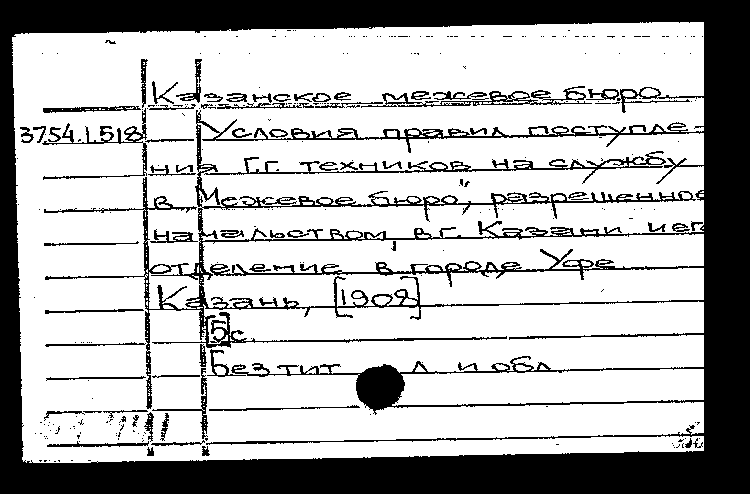 Казанское межевое бюро
3754.1.518 Условия правил поступле-
ния Г.г. техников на службу
в „Межевое бюро", разрешенное
начальством, в г. Казани и ег
отделение в городе Уфе
Казань, [1908]
[5]с.
Без тит л и обл